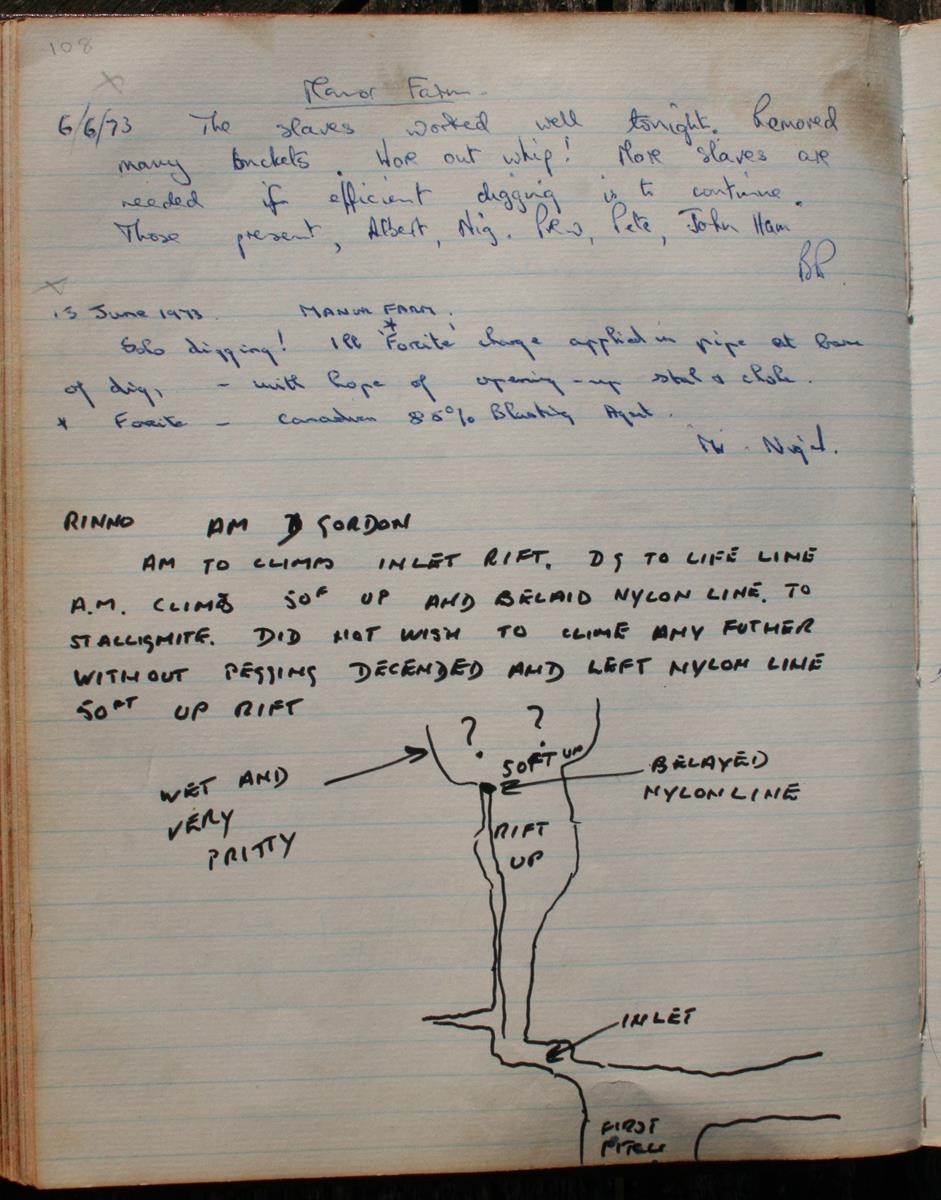 108
Manor Farm.
6/6/73 The slaves worked well tonight. Removed
many buckets. Wore out whip! More slaves are
needed if efficient digging is to continue.
Those present, Albert, Nig. Prew, Pete, John Ham
BP
13 June 1973. MANOR FARM.
Solo digging! 1lb 'Forcite'* charge applied in pipe at base
of dig, - with hope of opening-up stal & choke.
* Forcite - Canadian 85% Blasting Agent.
Nigel.
RINNO AM D GORDON
AM TO CLIMB INLET RIFT. DG TO LIFE LINE
A.M. CLIMB 50F UP AND BELAID NYLON LINE. TO
STALLIGMITE. DID NOT WISH TO CLIME ANY FUTHER
WITHOUT PEGGING DECENDED AND LEFT NYLON LINE
50FT UP RIFT
? ?
50FT UP
WET AND
VERY
PRITTY
BELAYED
NYLON LINE
RIFT
UP
INLET
FIRST
PITCH